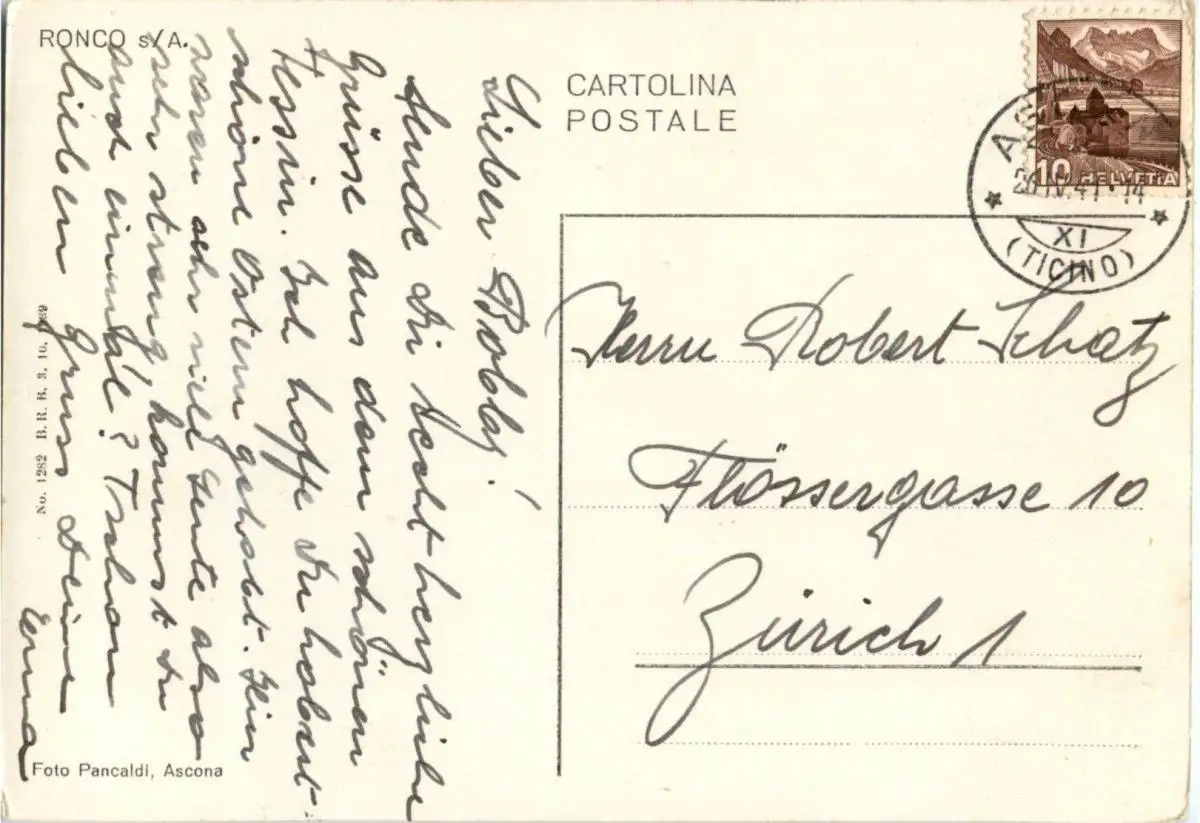 RONCO s/A.
CARTOLINA
POSTALE
10 HELVETIA
26.IV.41-14
XI
(TICINO)
Lieber Bobby!
Sende Dir recht herzliche
Grüsse aus dem schönen
Tessin. Ich hoffe Du habest
schöne Ostern gehabt. Hier
waren sehr viel Leute also
sehr streng, kommst Du
auch einmal? Tschau
lieben Gruss Deine
Erna
Herrn Robert Schatz
Flössergasse 10
Zürich 1
No. 1282 B. R. B. 3. 10.
Foto Pancaldi, Ascona